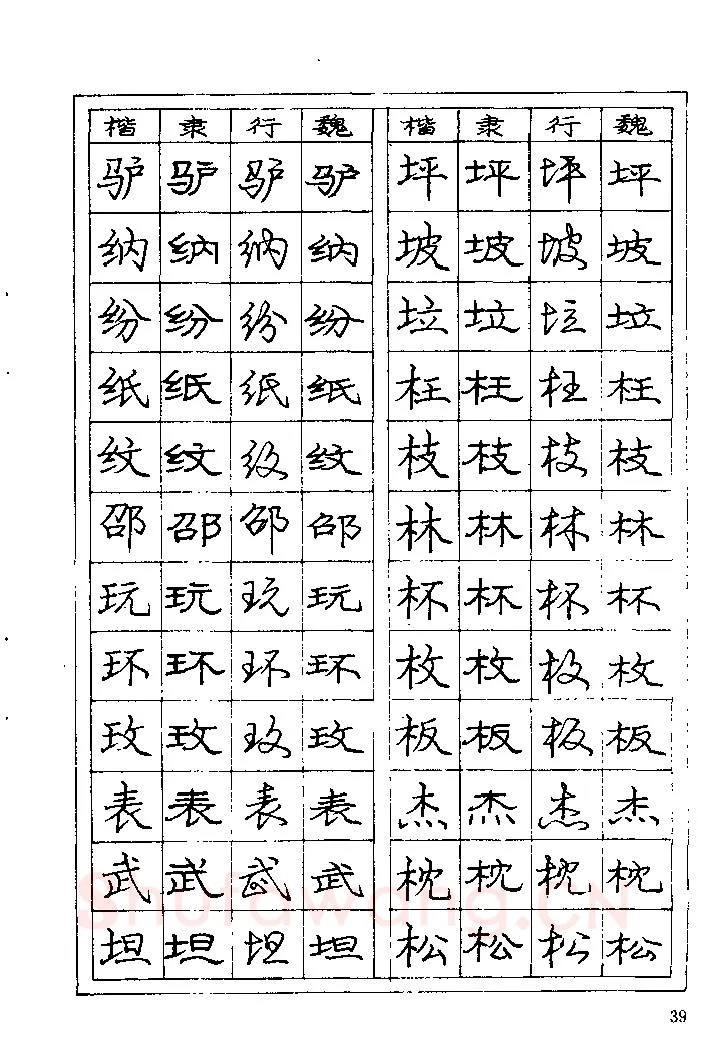 楷 隶 行 魏 楷 隶 行 魏
驴 驴 驴 驴 坪 坪 坪 坪
纳 纳 纳 纳 坡 坡 坡 坡
纷 纷 纷 纷 垃 垃 垃 垃
纸 纸 纸 纸 枉 枉 枉 枉
纹 纹 纹 纹 枝 枝 枝 枝
邵 邵 邵 邵 林 林 林 林
玩 玩 玩 玩 杯 杯 杯 杯
环 环 环 环 枚 枚 枚 枚
玫 玫 玫 玫 板 板 板 板
表 表 表 表 杰 杰 杰 杰
武 武 武 武 枕 枕 枕 枕
Shufawang.CN
坦 坦 坦 坦 松 松 松 松
39